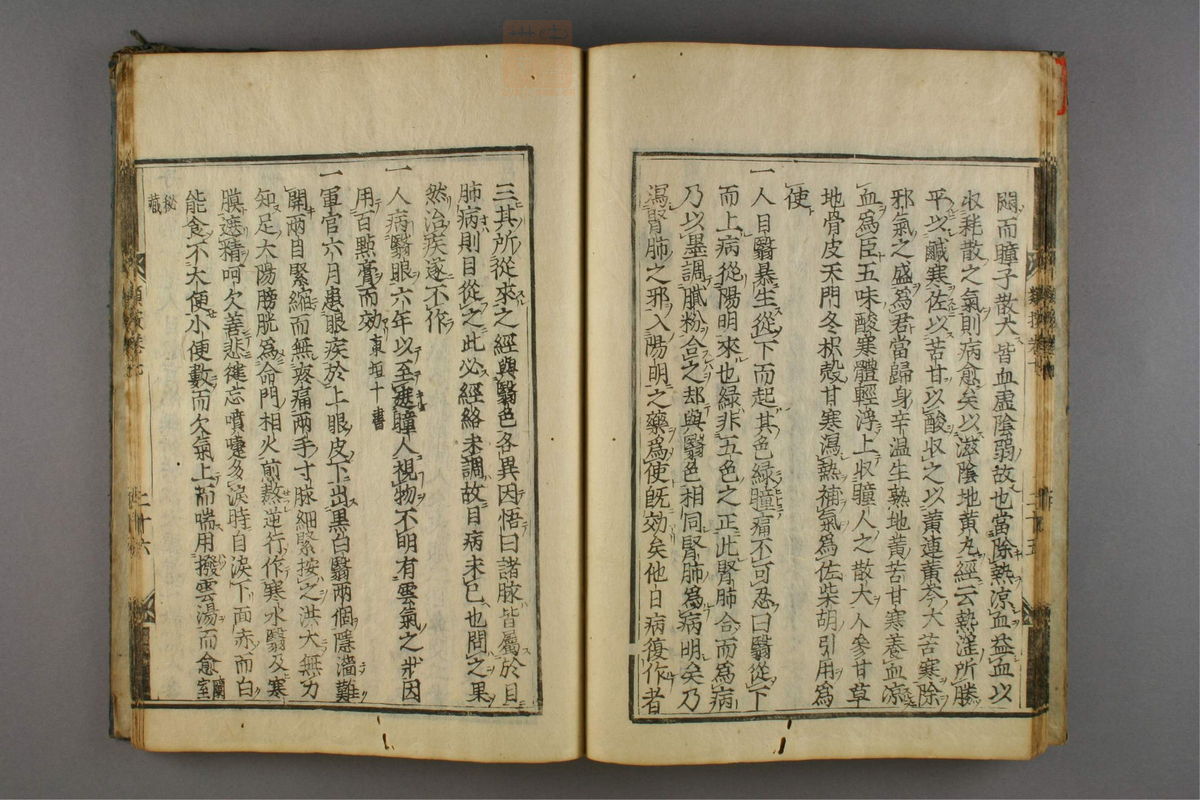 闊而瞳子散大皆血虛陰弱故也當除熱涼血益血以
收耗散之氣則病愈矣以滋陰地黃丸經云熱淫所勝
平以鹹寒佐以苦甘以酸收之以黃連黃芩大苦寒除
邪氣之盛爲君當歸身辛温生熟地黃苦甘寒養血涼
血爲臣五味酸寒體輕浮上收瞳人之散大人參甘草
地骨皮天門冬枳殼甘寒瀉熱補氣爲佐柴胡引用爲
使
一人目翳暴生從下而起其色綠瞳痛不可忍曰翳從下
而上病從陽明來也綠非五色之正此腎肺合而爲病
乃以墨調膩粉合之却與翳色相同腎肺爲病明矣乃
瀉腎肺之邪入陽明之藥爲使旣効矣他日病復作者
三其所從來之經與翳色各異因悟曰諸脉皆屬於目
肺病則目從之此必經絡未調故目病未已也問之果
然治疾遂不作
一人病翳眼六年以至遮瞳人視物不明有雲氣之狀因
用百點膏而効東垣十書
一軍官六月患眼疾於上眼皮下出黑白翳兩個隱濇難
開兩目緊縮而無疼痛兩手寸脉細緊按之洪大無力
知足太陽膀胱爲命門相火煎熬逆行作寒水翳及寒
膜遮精呵欠善悲健忘噴嚔多淚時自淚下面赤而白
能食不大便小便數而欠氣上而喘用撥雲湯而愈蘭室
秘藏
二十五
二十六